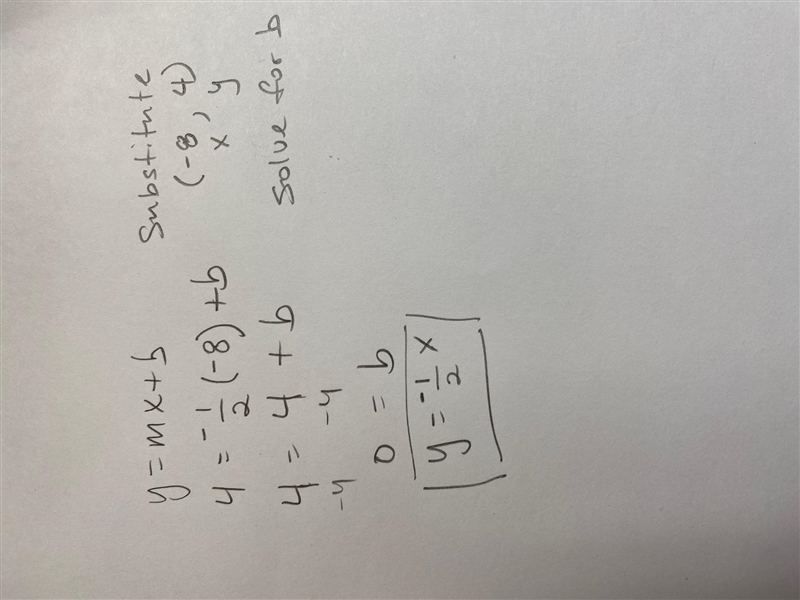 y = mx + b Substitute
4 = -1/2 (-8) + b (-8, 4)
x, y
4 = 4 + b Solve for b
-4 -4
0 = b
y = -1/2 x